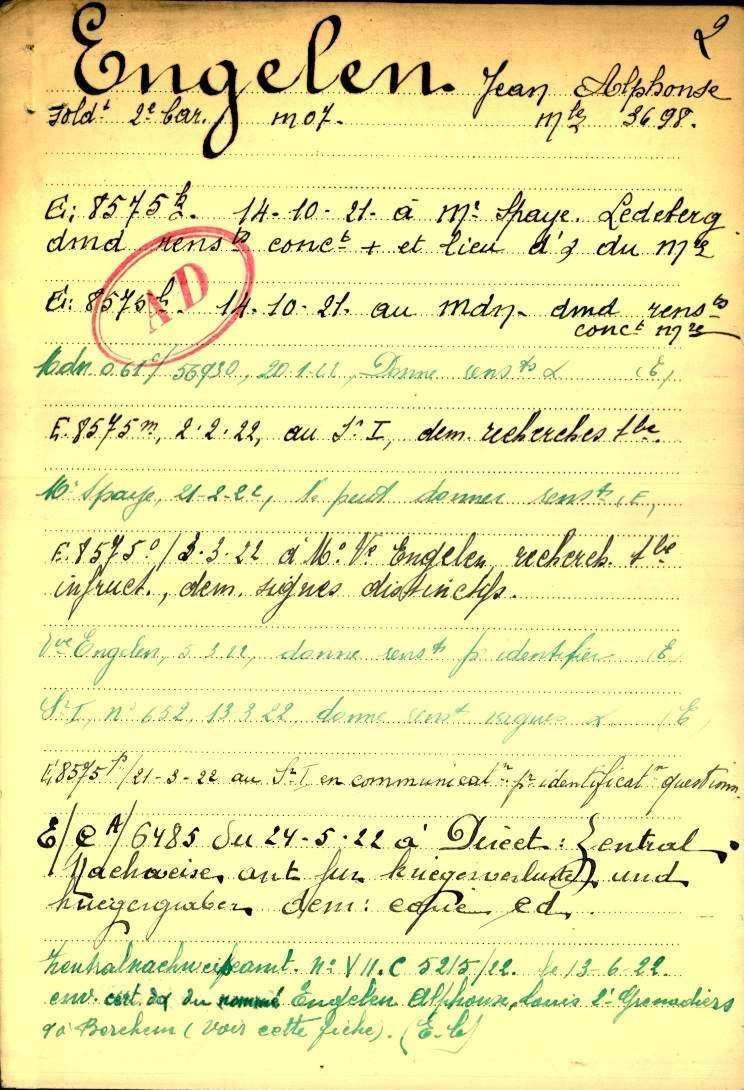 2
Engelen. Jean Alphonse
Soldt 2e Car. m 07. mle 3698.
E: 8575 k. 14-10-21. à Mr Spaye. Ledeberg
dmd rensts conct + et lieu d' du mre
AD
E: 8575 l. 14.10.21. au Mdn. dmd rensts
conct mre
Mdn 061 c/ 56930, 20.1.22, Donne rensts (E)
E. 8575 m, 2.2.22, au Sr I, dem. recherches tbe.
Mr Spaye, 21-2-22, peut donner rensts (E)
E. 8575 o/ 3.3.22 à Me Ve Engelen, recherch. tbe
infruct., dem. signes distinctifs.
Vve Engelen, 5.3.22, donne rensts pr identifier (E)
Sr I, no 652, 13.3.22 donne renst vagues (E)
E. 8575 p/ 21-3-22 au Sr I en communicatn pr identificatn questionn.
E/CA/6485 du 24-5-22 à Direct: Zentral
Nachweise, amt fur kriegerverluste und
kriegergraber dem: copie cd.
Zentralnachweiseamt. no VII. C 5215/22. le 13-6-22.
env. cert. du nommé Engelen Alphonse, Louis 2e Grenadiers
à Berchem (voir cette fiche). (E.C)